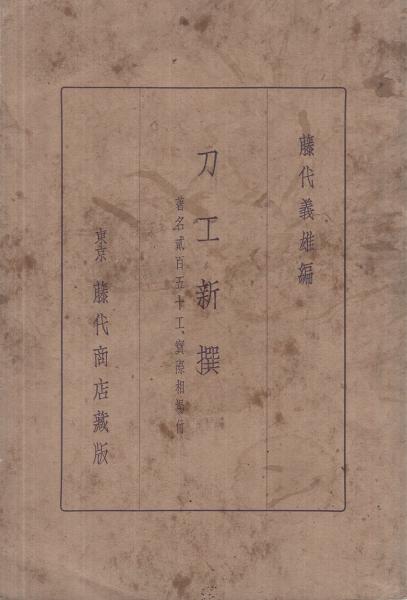 藤代義雄編
刀工新撰
著名貳百五十工、實際相場付
東京 藤代商店藏版